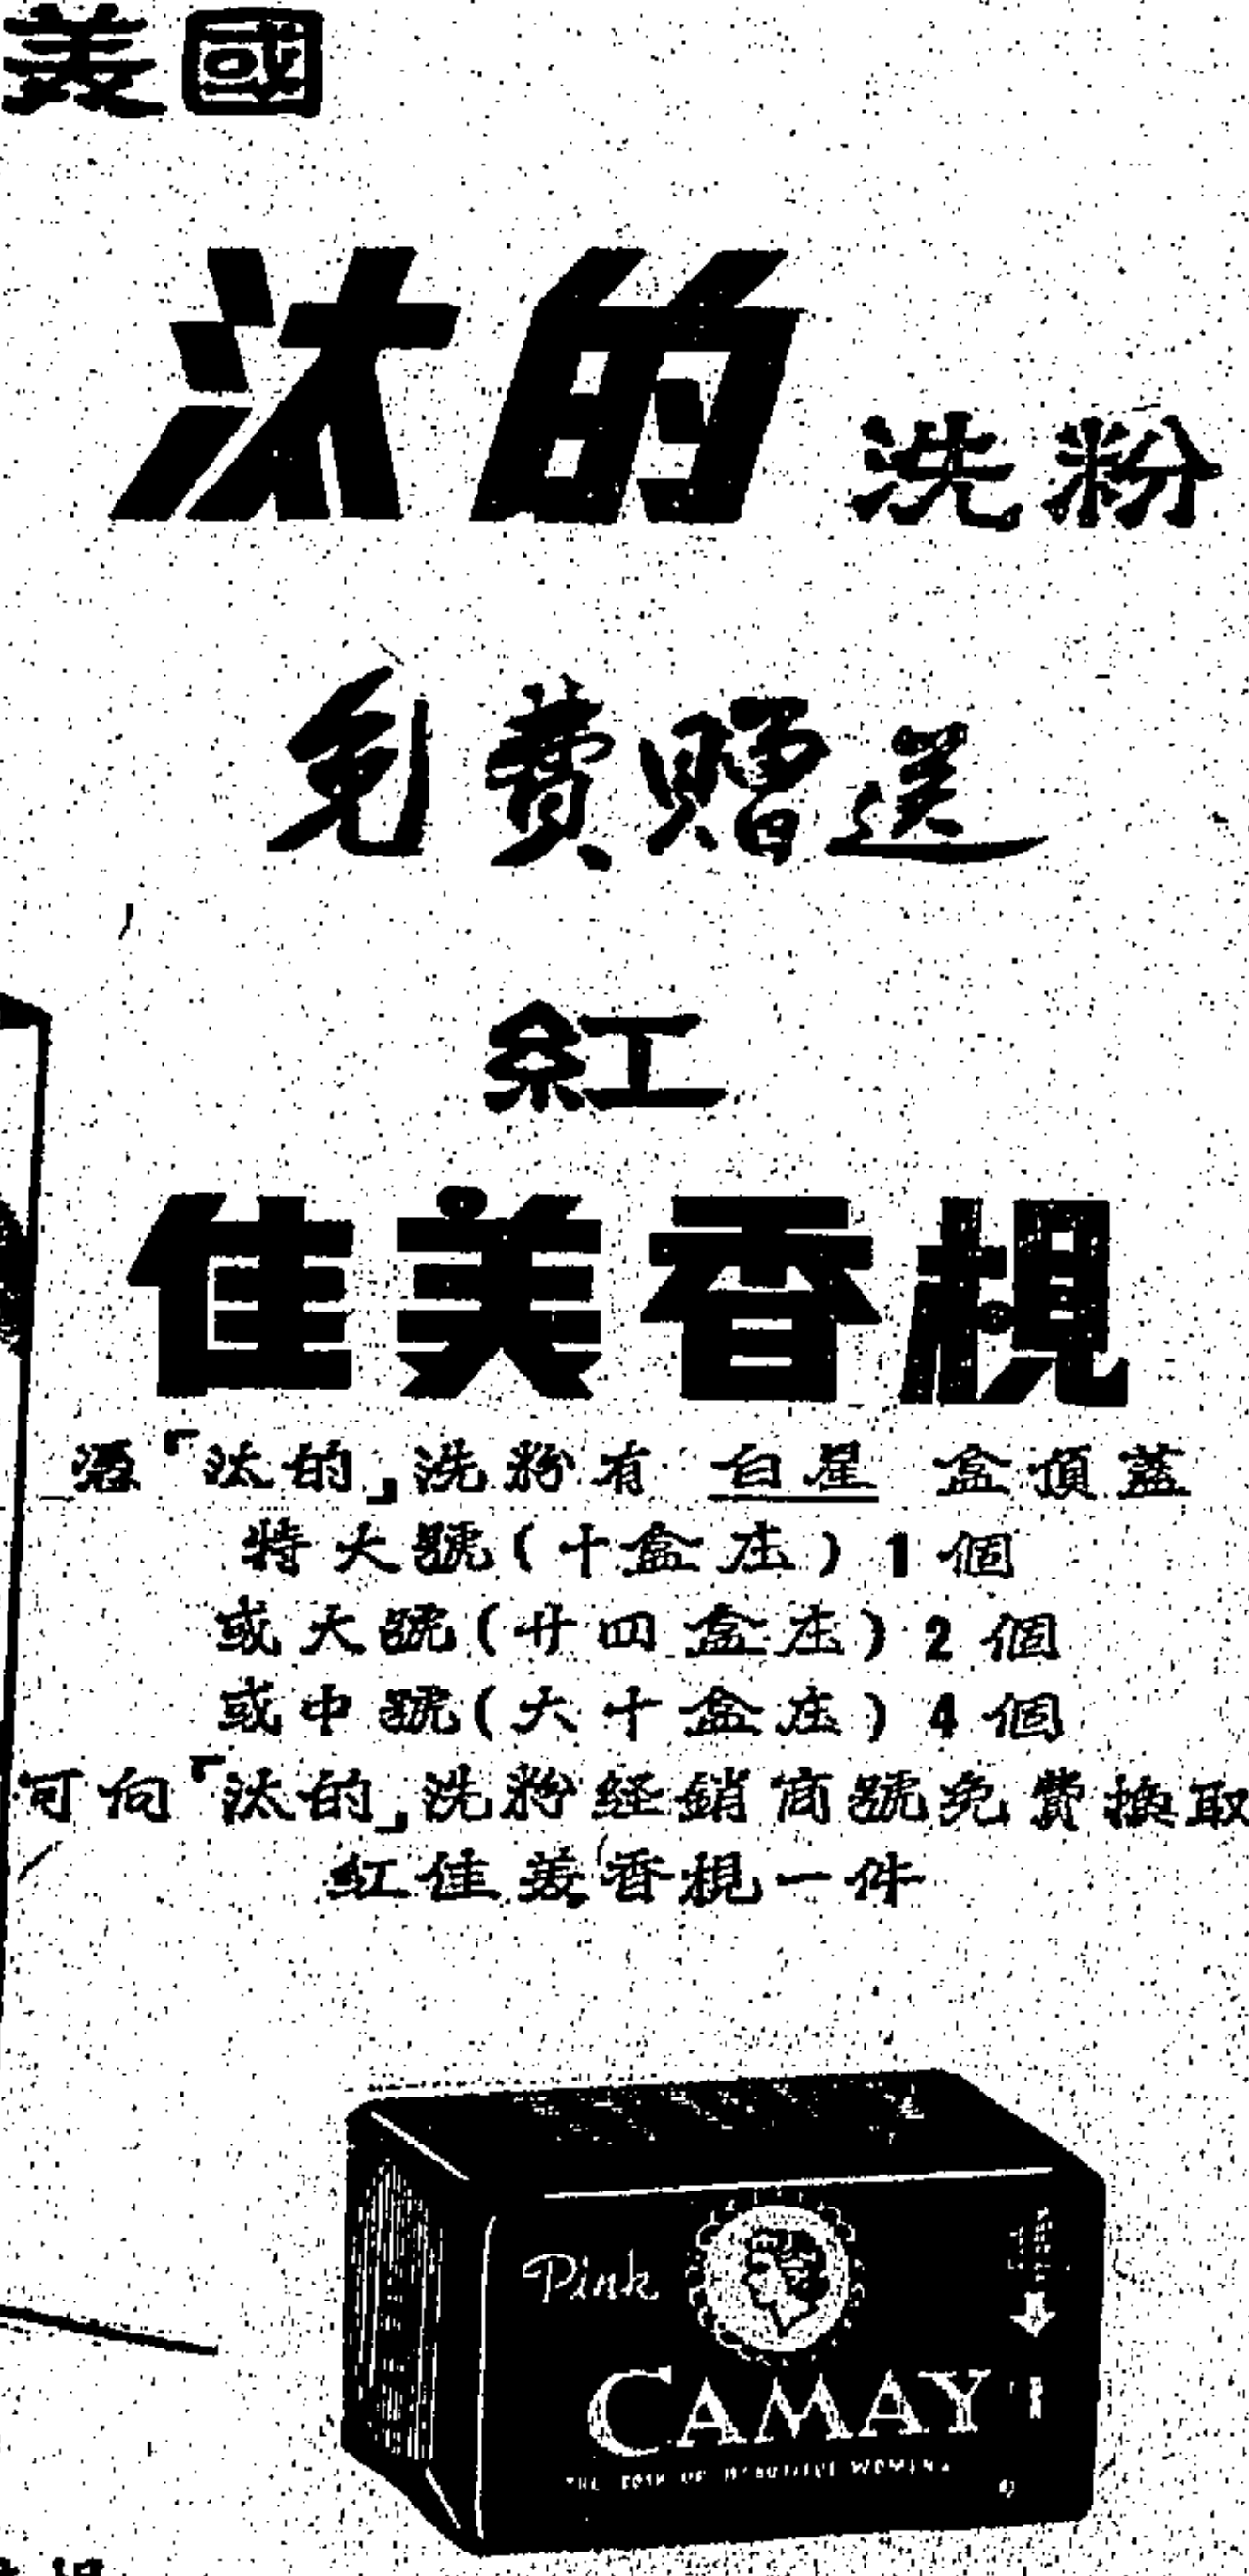 美國
汰的 洗粉
免費贈送
紅
佳美香梘
憑「汰的」洗粉有 白星 盒頂蓋
特大號(十盒庄) 1 個
或大號(廿四盒庄) 2 個
或中號(六十盒庄) 4 個
可向「汰的」洗粉经銷商號免費換取
紅佳美香梘一件
Pink
CAMAY
THE SOAP OF BEAUTIFUL WOMEN